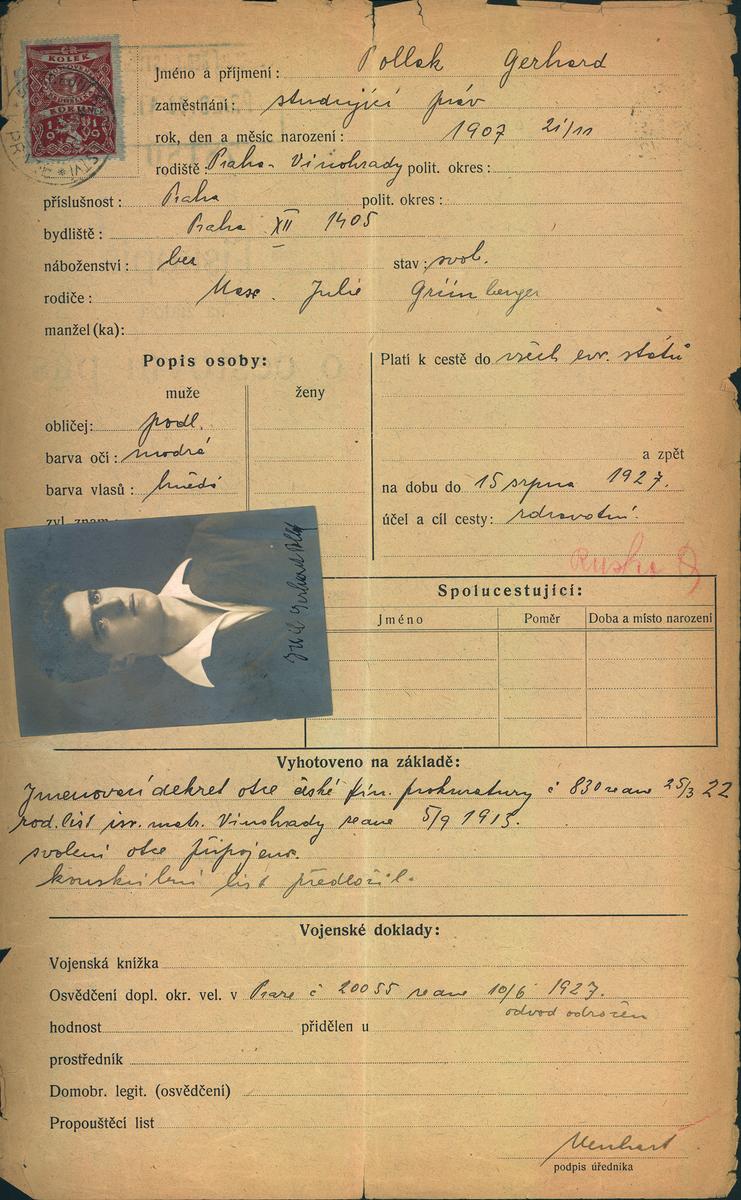 ČR
KOLEK
KORUNA
1919
Jméno a příjmení: Pollak Gerhard
zaměstnání: studující práv
rok, den a měsíc narození: 1907 21/11
rodiště: Praha-Vinohrady polit. okres:
příslušnost: Praha polit. okres:
bydliště: Praha XII 1405
náboženství: bez stav: svob.
rodiče: Max. Julie Grünberger
manžel(ka):
Popis osoby:
muže ženy
obličej: podl.
barva očí: modré
barva vlasů: hnědé
zvl. znam.
Platí k cestě do všech evr. států
a zpět
na dobu do 15 srpna 1927.
účel a cíl cesty: zdravotní.
Spolucestující:
Jméno Poměr Doba a místo narození
Vyhotoveno na základě:
Jmenovací dekret otce české fin. prokuratury č 830 ze dne 25/3 22
rod. list isr. matr. Vinohrady ze dne 5/9 1913.
svolení otce připojeno.
list předložil.
Vojenské doklady:
Vojenská knížka
Osvědčení dopl. okr. vel. v Praze č 20055 ze dne 10/6 1927.
odvod odročen
hodnost přidělen u
prostředník
Domobr. legit. (osvědčení)
Propouštěcí list
podpis úředníka